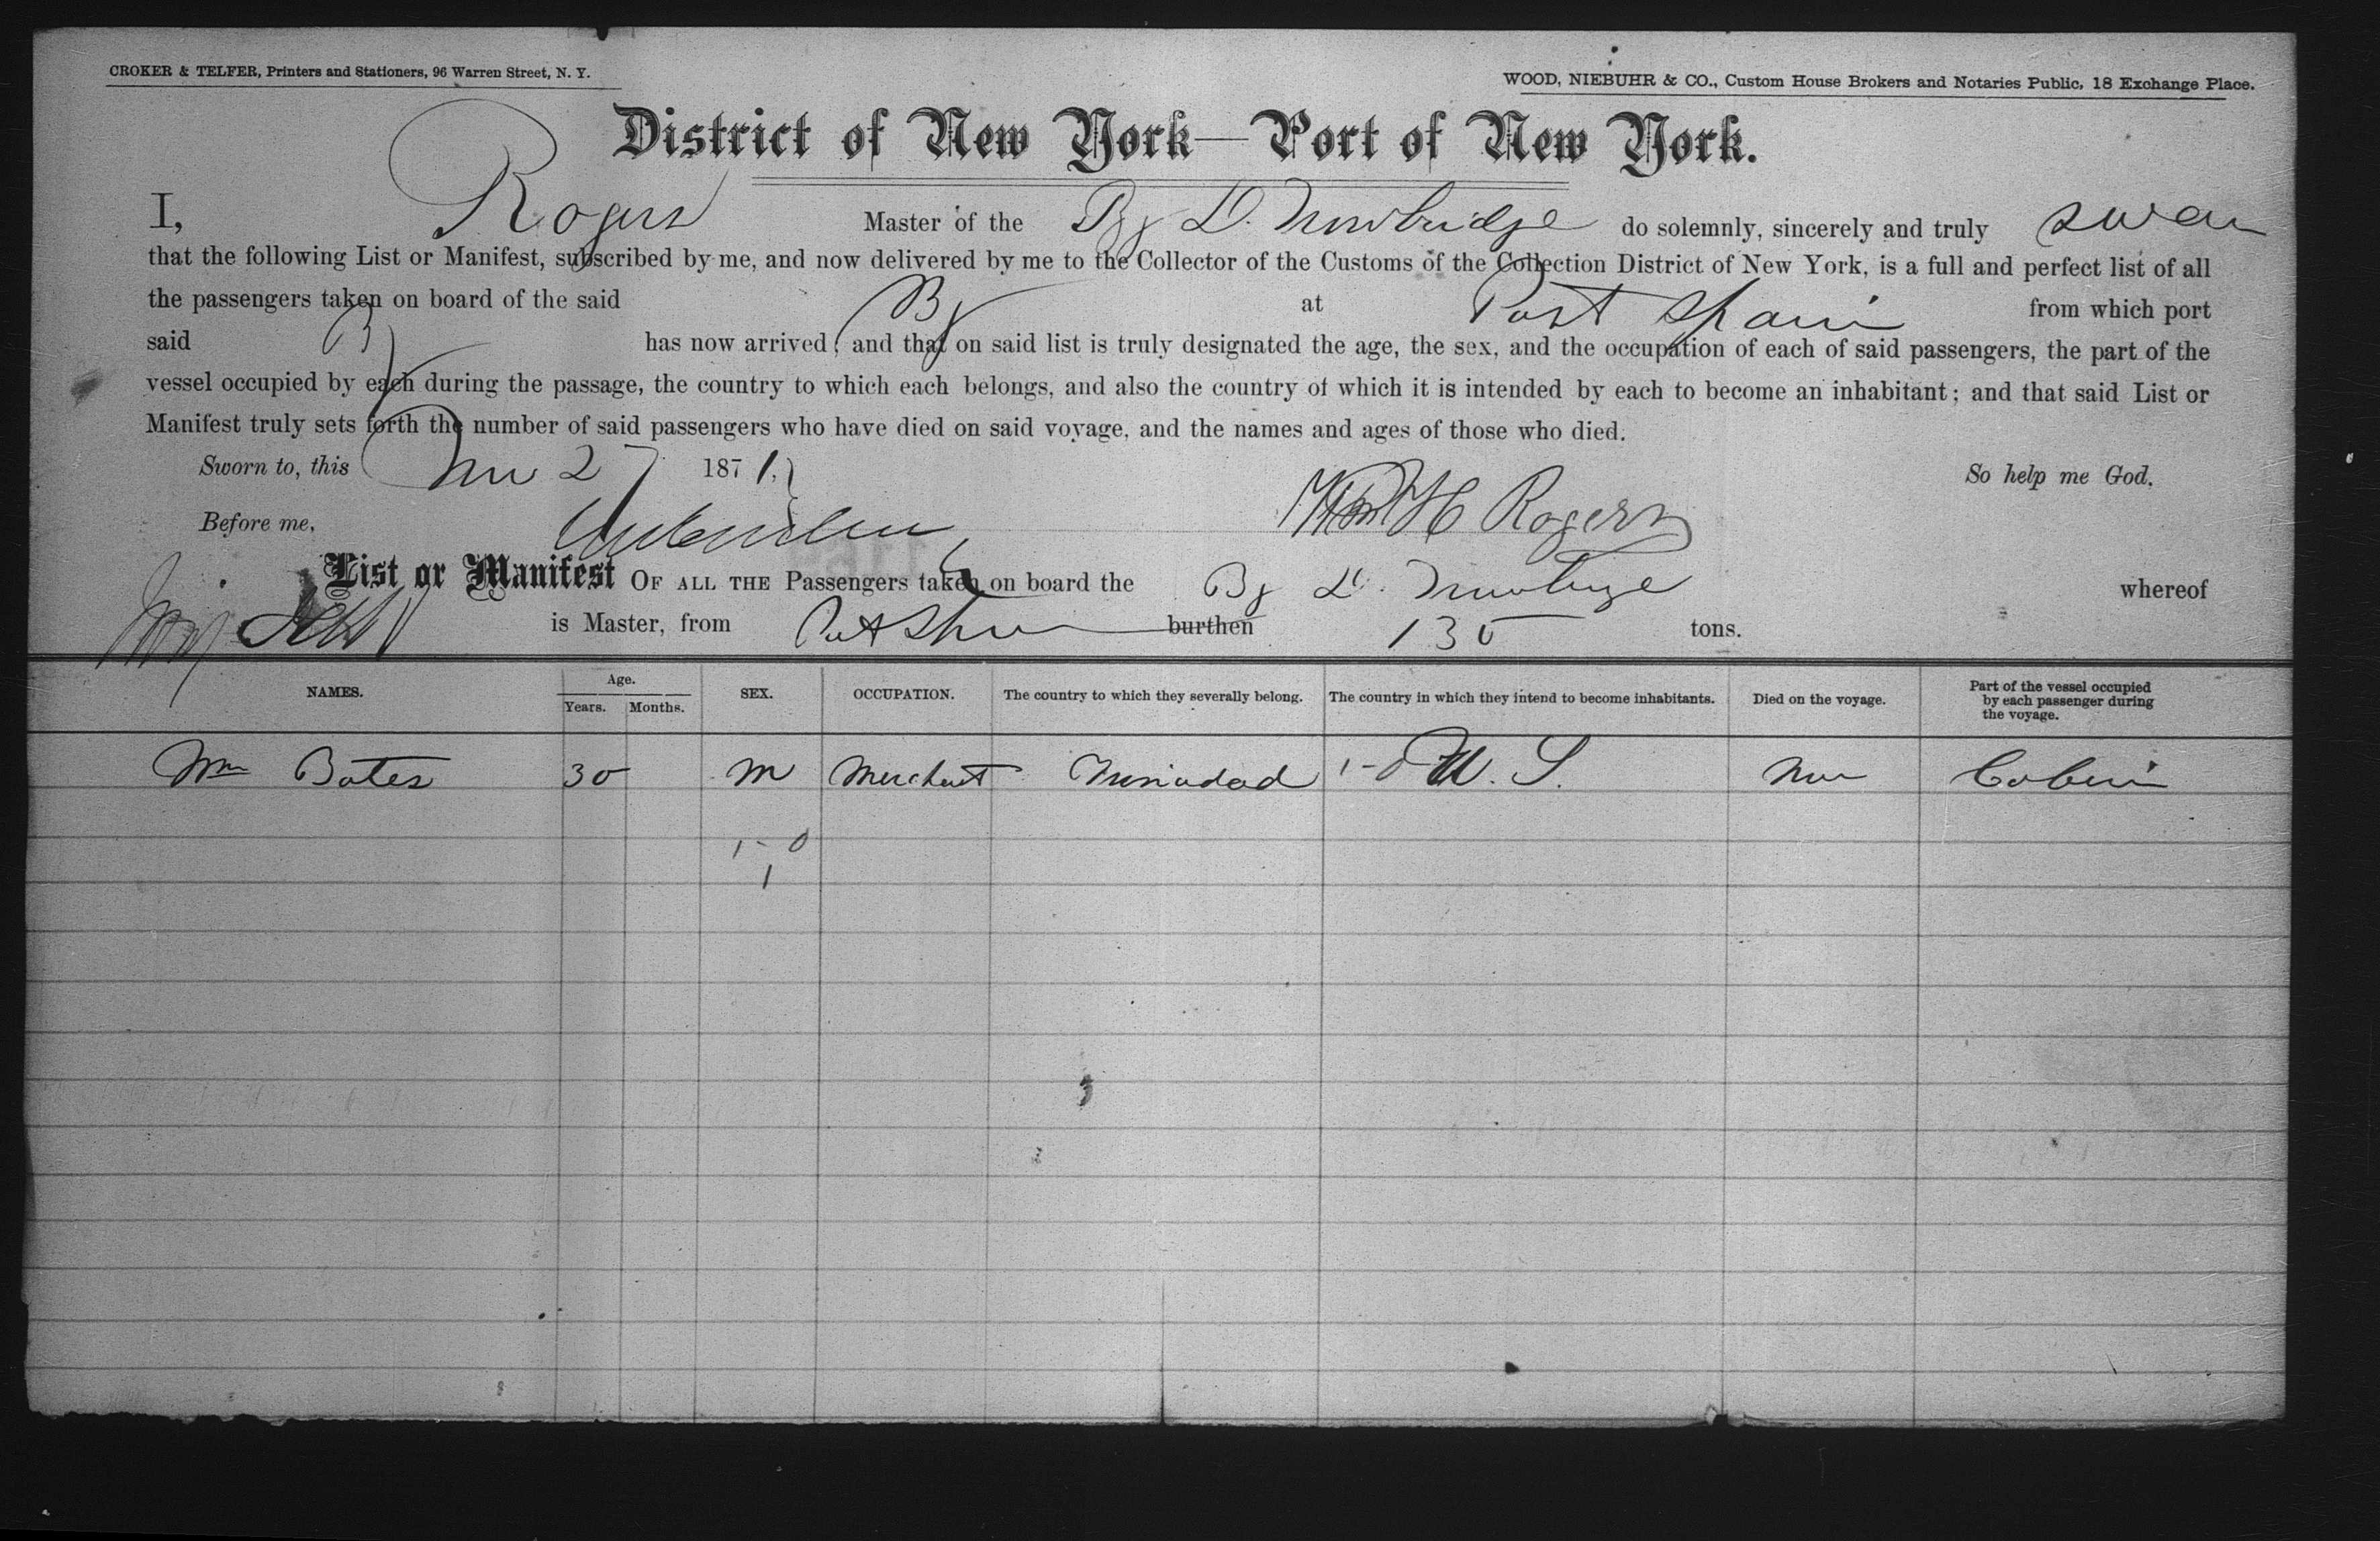 CROKER & TELFER, Printers and Stationers, 96 Warren Street, N. Y.
WOOD, NIEBUHR & CO., Custom House Brokers and Notaries Public, 18 Exchange Place.
District of New York—Port of New York.
I, Rogers Master of the Bg D. Trowbridge do solemnly, sincerely and truly swear
that the following List or Manifest, subscribed by me, and now delivered by me to the Collector of the Customs of the Collection District of New York, is a full and perfect list of all
the passengers taken on board of the said Bg at Port Spain from which port
said Bg has now arrived; and that on said list is truly designated the age, the sex, and the occupation of each of said passengers, the part of the
vessel occupied by each during the passage, the country to which each belongs, and also the country of which it is intended by each to become an inhabitant; and that said List or
Manifest truly sets forth the number of said passengers who have died on said voyage, and the names and ages of those who died.
Sworn to, this 27 1871. So help me God.
Before me, Wm H Rogers
List or Manifest OF ALL THE Passengers taken on board the Bg D. Trowbridge whereof
is Master, from Port Spain burthen 135 tons.
NAMES. Age. Years. Months. SEX. OCCUPATION. The country to which they severally belong. The country in which they intend to become inhabitants. Died on the voyage. Part of the vessel occupied by each passenger during the voyage.
Wm Bates 30 M Merchant Trinidad 1-0 U. S. Cabin
1-0
1